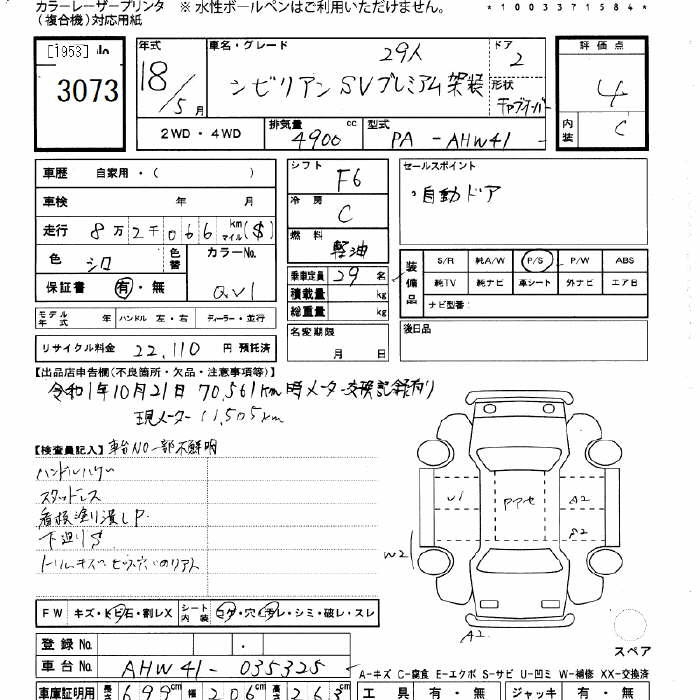 カラーレーザープリンタ ※ 水性ボールペンはご利用いただけません。
(複合機)対応用紙
*1003371584*
[1953]
3073
年式 18/5月
車名・グレード 29人
シビリアン SVプレミアム架装
ドア 2
形状
評価点 4
内装 C
2WD・4WD
排気量 4900 cc
型式 PA-AHW41
車歴 自家用・( )
車検 年 月
走行 8万2千066 km マイル ($)
色 シロ 色替
カラーNo. QV1
保証書 有・無
シフト F6
冷房 C
燃料 軽油
乗車定員 29 名
積載量 kg
総重量 kg
名変期限 月 日
セールスポイント
・自動ドア
装備品
S/R 純A/W P/S P/W ABS
純TV 純ナビ 革シート 外ナビ エアB
ナビ型番:
後日品
モデル年式 年 ハンドル 左・右 ディーラー・並行
リサイクル料金 22,110 円 預託済
【出品店申告欄(不良箇所・欠品・注意事項等)】
令和1年10月21日 70,561km時メーター交換記録有り
現メーター 11,505km
【検査員記入】車台NO一部不鮮明
スタッドレス
看板塗り潰しP
下廻りS
U1
A2
S2
W2
A2
FW キズ・ヒビ石・割レX
シート内装 コゲ・穴・汚レ・シミ・破レ・スレ
登録 No.
車台 No. AHW41-035325
スペア
A-キズ C-腐食 E-エクボ S-サビ U-凹ミ W-補修 XX-交換済
車庫証明用 長さ 699cm 幅 206cm 高さ 263cm
工具 有・無 ジャッキ 有・無